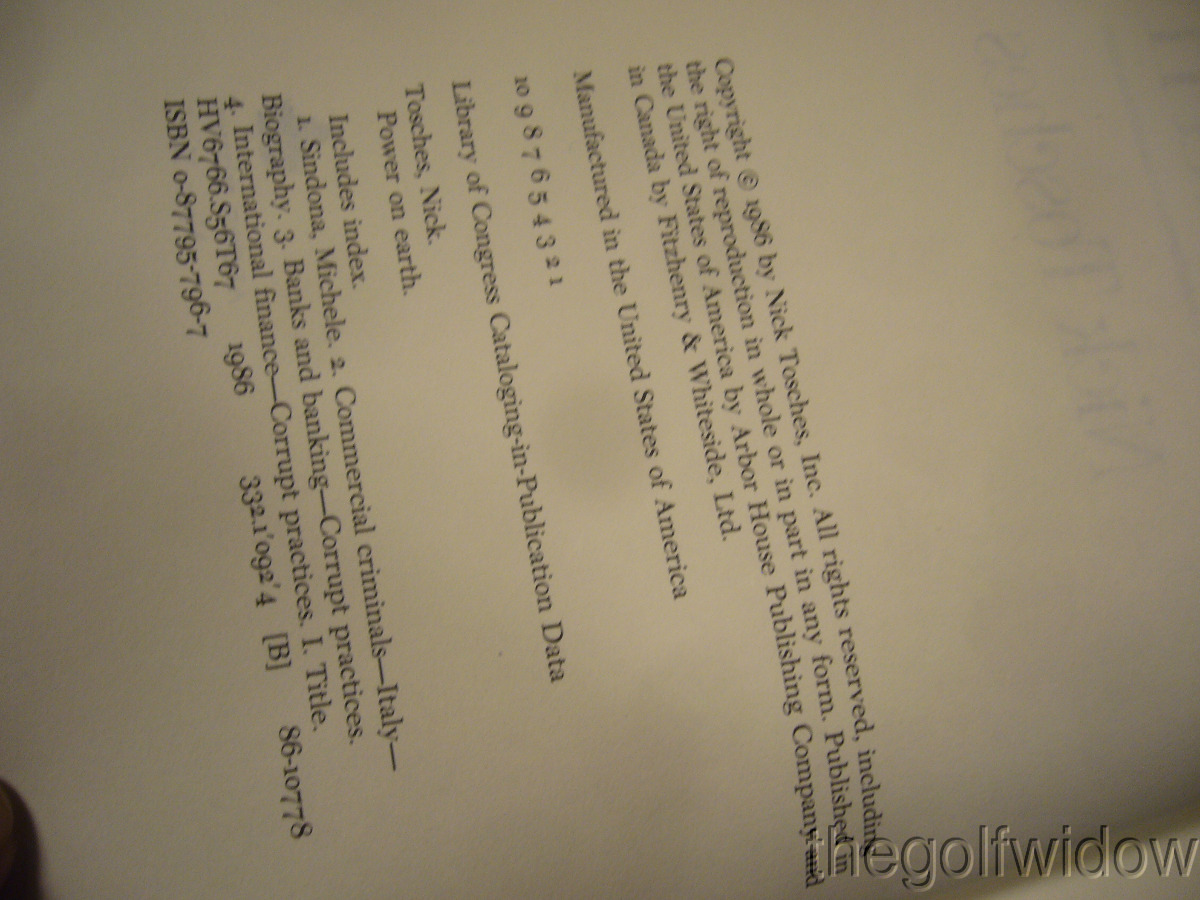 Copyright © 1986 by Nick Tosches, Inc. All rights reserved, including
the right of reproduction in whole or in part in any form. Published in
the United States of America by Arbor House Publishing Company and
in Canada by Fitzhenry & Whiteside, Ltd.
Manufactured in the United States of America
10 9 8 7 6 5 4 3 2 1
Library of Congress Cataloging-in-Publication Data
Tosches, Nick.
Power on earth.
Includes index.
1. Sindona, Michele. 2. Commercial criminals—Italy—
Biography. 3. Banks and banking—Corrupt practices.
4. International finance—Corrupt practices. I. Title.
HV6766.S56T67 1986 332.1'092'4 [B] 86-10778
ISBN 0-87795-796-7
thegolfwidow